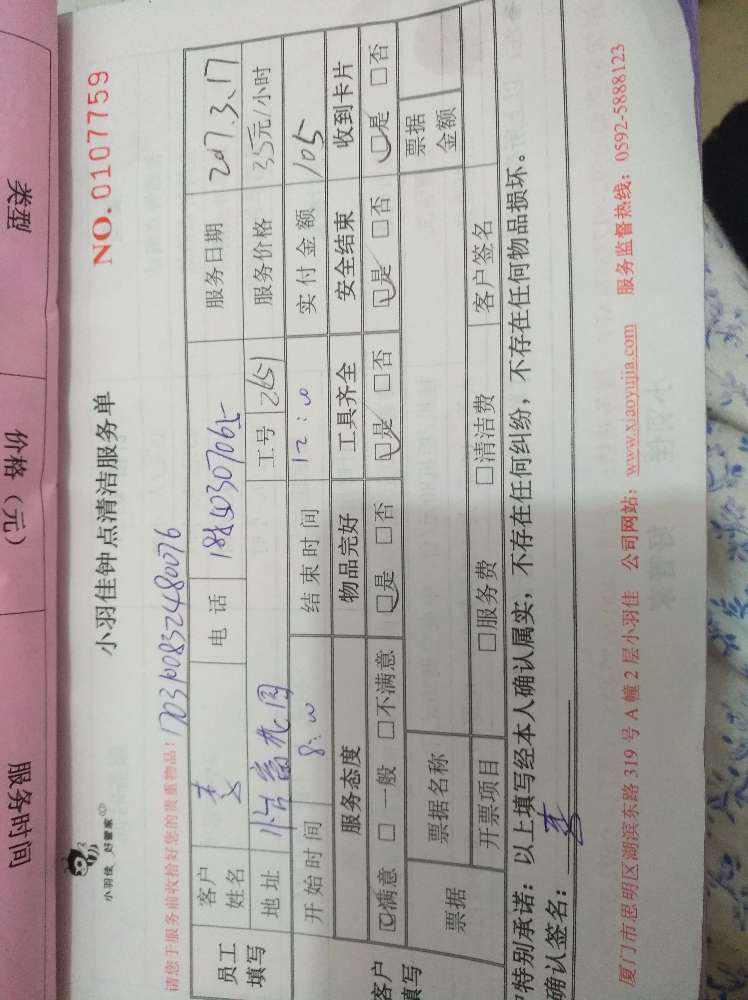 类型 价格（元） 服务时间
小羽佳 好管家
小羽佳钟点清洁服务单
NO.0107759
请您于服务前收拾好您的贵重物品！
员工填写 客户姓名 李 电话 服务日期 2017.3.17
地址 怡富花园 工号 2651 服务价格 35元/小时
开始时间 8:00 结束时间 12:00 实付金额 105
服务态度 物品完好 工具齐全 安全结束 收到卡片
客户填写 ☑满意 □一般 □不满意 ☑是 □否 ☑是 □否 ☑是 □否 ☑是 □否
票据 票据名称 票据金额
开票项目 □服务费 □清洁费 客户签名
特别承诺：以上填写经本人确认属实，不存在任何纠纷，不存在任何物品损坏。
确认签名： 李
厦门市思明区湖滨东路 319 号 A 幢 2 层小羽佳 公司网站：www.xiaoyujia.com 服务监督热线：0592-5888123